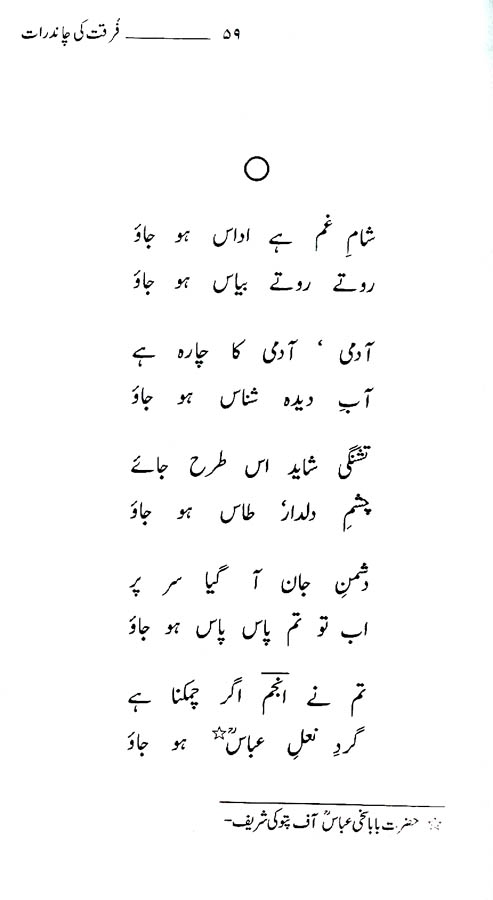 فُرقت کی چاندرات ــــــــــــ ۵۹
شامِ غم ہے اداس ہو جاؤ
روتے روتے بیاس ہو جاؤ
آدمی ‘ آدمی کا چارہ ہے
آبِ دیدہ شناس ہو جاؤ
تشنگی شاید اس طرح جائے
چشمِ دلدار‘ طاس ہو جاؤ
دشمنِ جان آ گیا سر پر
اب تو تم پاس پاس ہو جاؤ
تم نے انجم اگر چمکنا ہے
گردِ نعلِ عباسؒ☆ ہو جاؤ
☆ حضرت بابا سخی عباسؒ آف پتوکی شریف۔